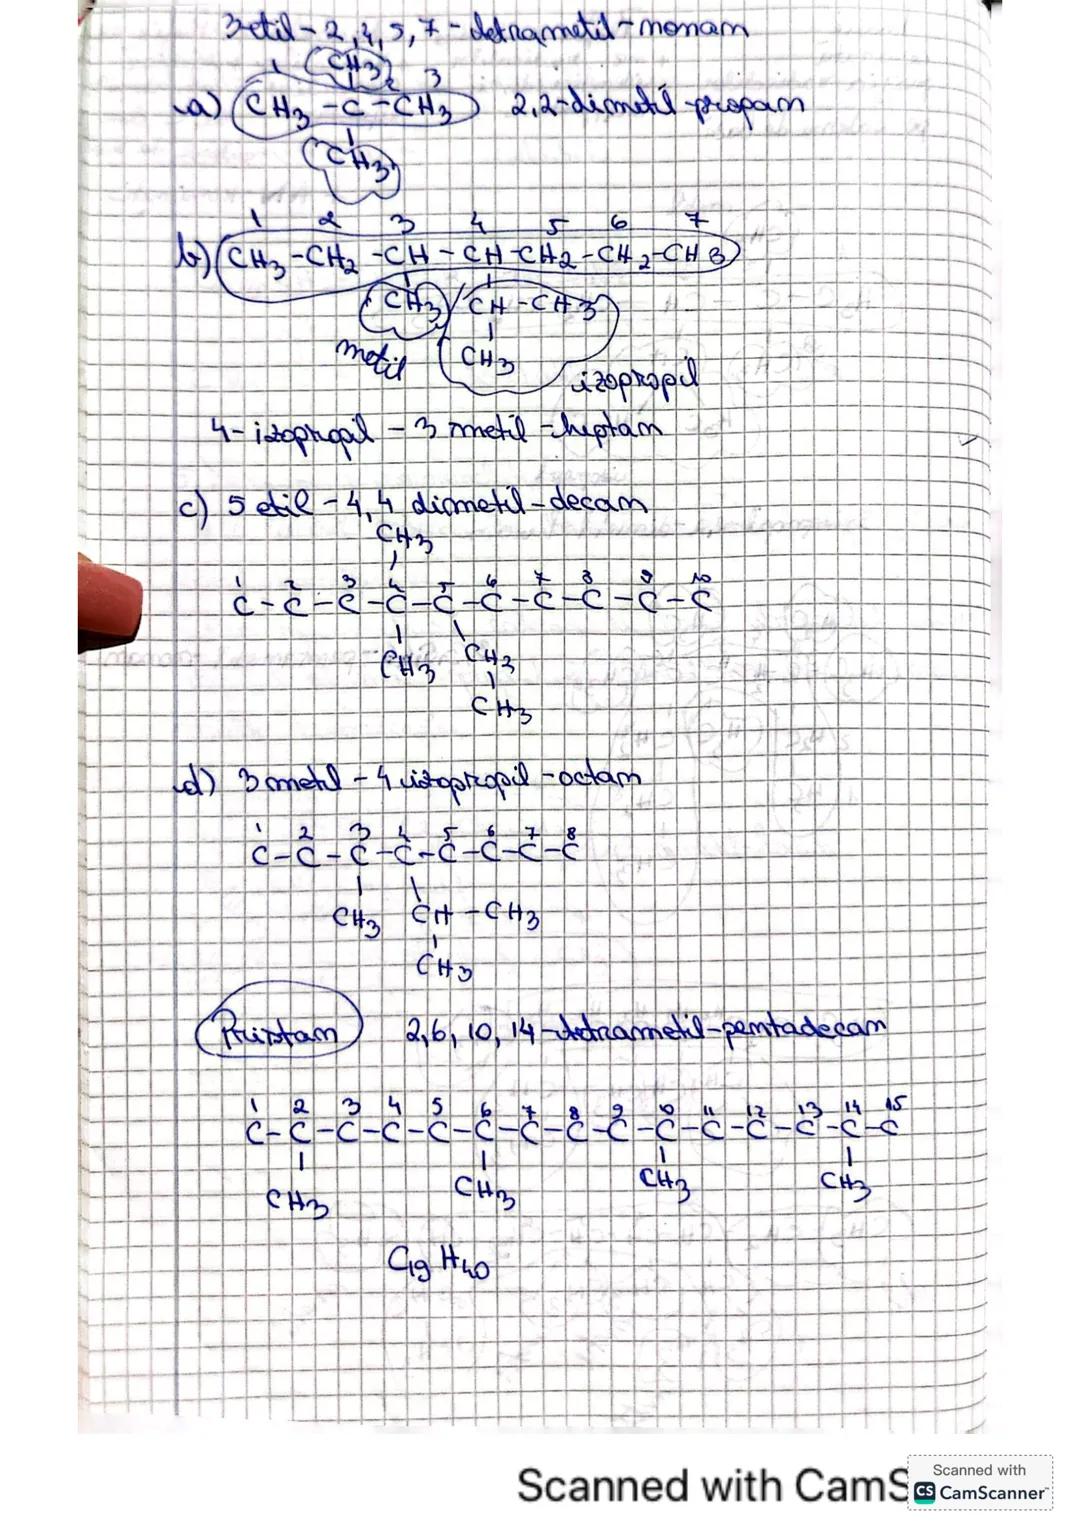 3-etil-2,4,5,7-tetrametil-nonan
CH3
1 2 3
a) CH3-C-CH3 2,2-dimetil-propan
CH3
1 2 3 4 5 6 7
b) CH3-CH2-CH-CH-CH2-CH2-CH3
CH3 CH-CH3
metil CH3
izopropil
4-izopropil-3 metil-heptan
c) 5 etil-4,4 dimetil-decan
CH3
1 2 3 4 5 6 7 8 9 10
C-C-C-C-C-C-C-C-C-C
CH3 CH2
CH3
d) 3 metil-4 izopropil-octan
1 2 3 4 5 6 7 8
C-C-C-C-C-C-C-C
CH3 CH-CH3
CH3
Pristan 2,6,10,14-tetrametil-pentadecan
1 2 3 4 5 6 7 8 9 10 11 12 13 14 15
C-C-C-C-C-C-C-C-C-C-C-C-C-C-C
CH3 CH3 CH3 CH3
C19H40
Scanned with CamS
Scanned with
CS CamScanner